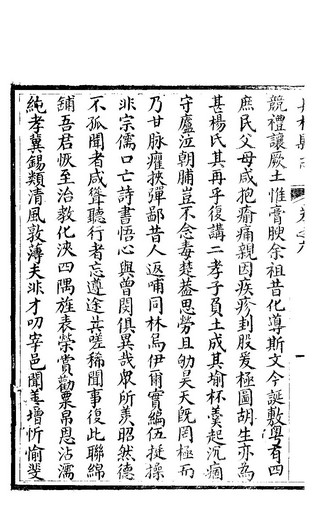 競禮讓厥土惟膏腴余祖昔化導斯文今誕敷粵有四
庶民父母咸抱痌瘝痛親因疾疹刲股爰極圖胡生亦為
甚楊氏其再乎復講二孝子負土成其墳杯羹起沉痾
守廬泣朝脯豈不念毒楚葢思勞且劬昊天既罔極而
乃甘脉癯挾彈鄙昔人返哺同林烏伊爾實編伍挺操
非宗儒口亡詩書悟心與曾閔俱異哉眾所羨昭然德
不孤聞者咸聳聽行者忘遵途共嗟稀聞事復此聯綿
鋪吾君恢至治教化泱四隅旌表榮賞勸粟帛恩沾濡
純孝冀錫類清風敦薄夫非才叨宰邑聞善增忻愉斐